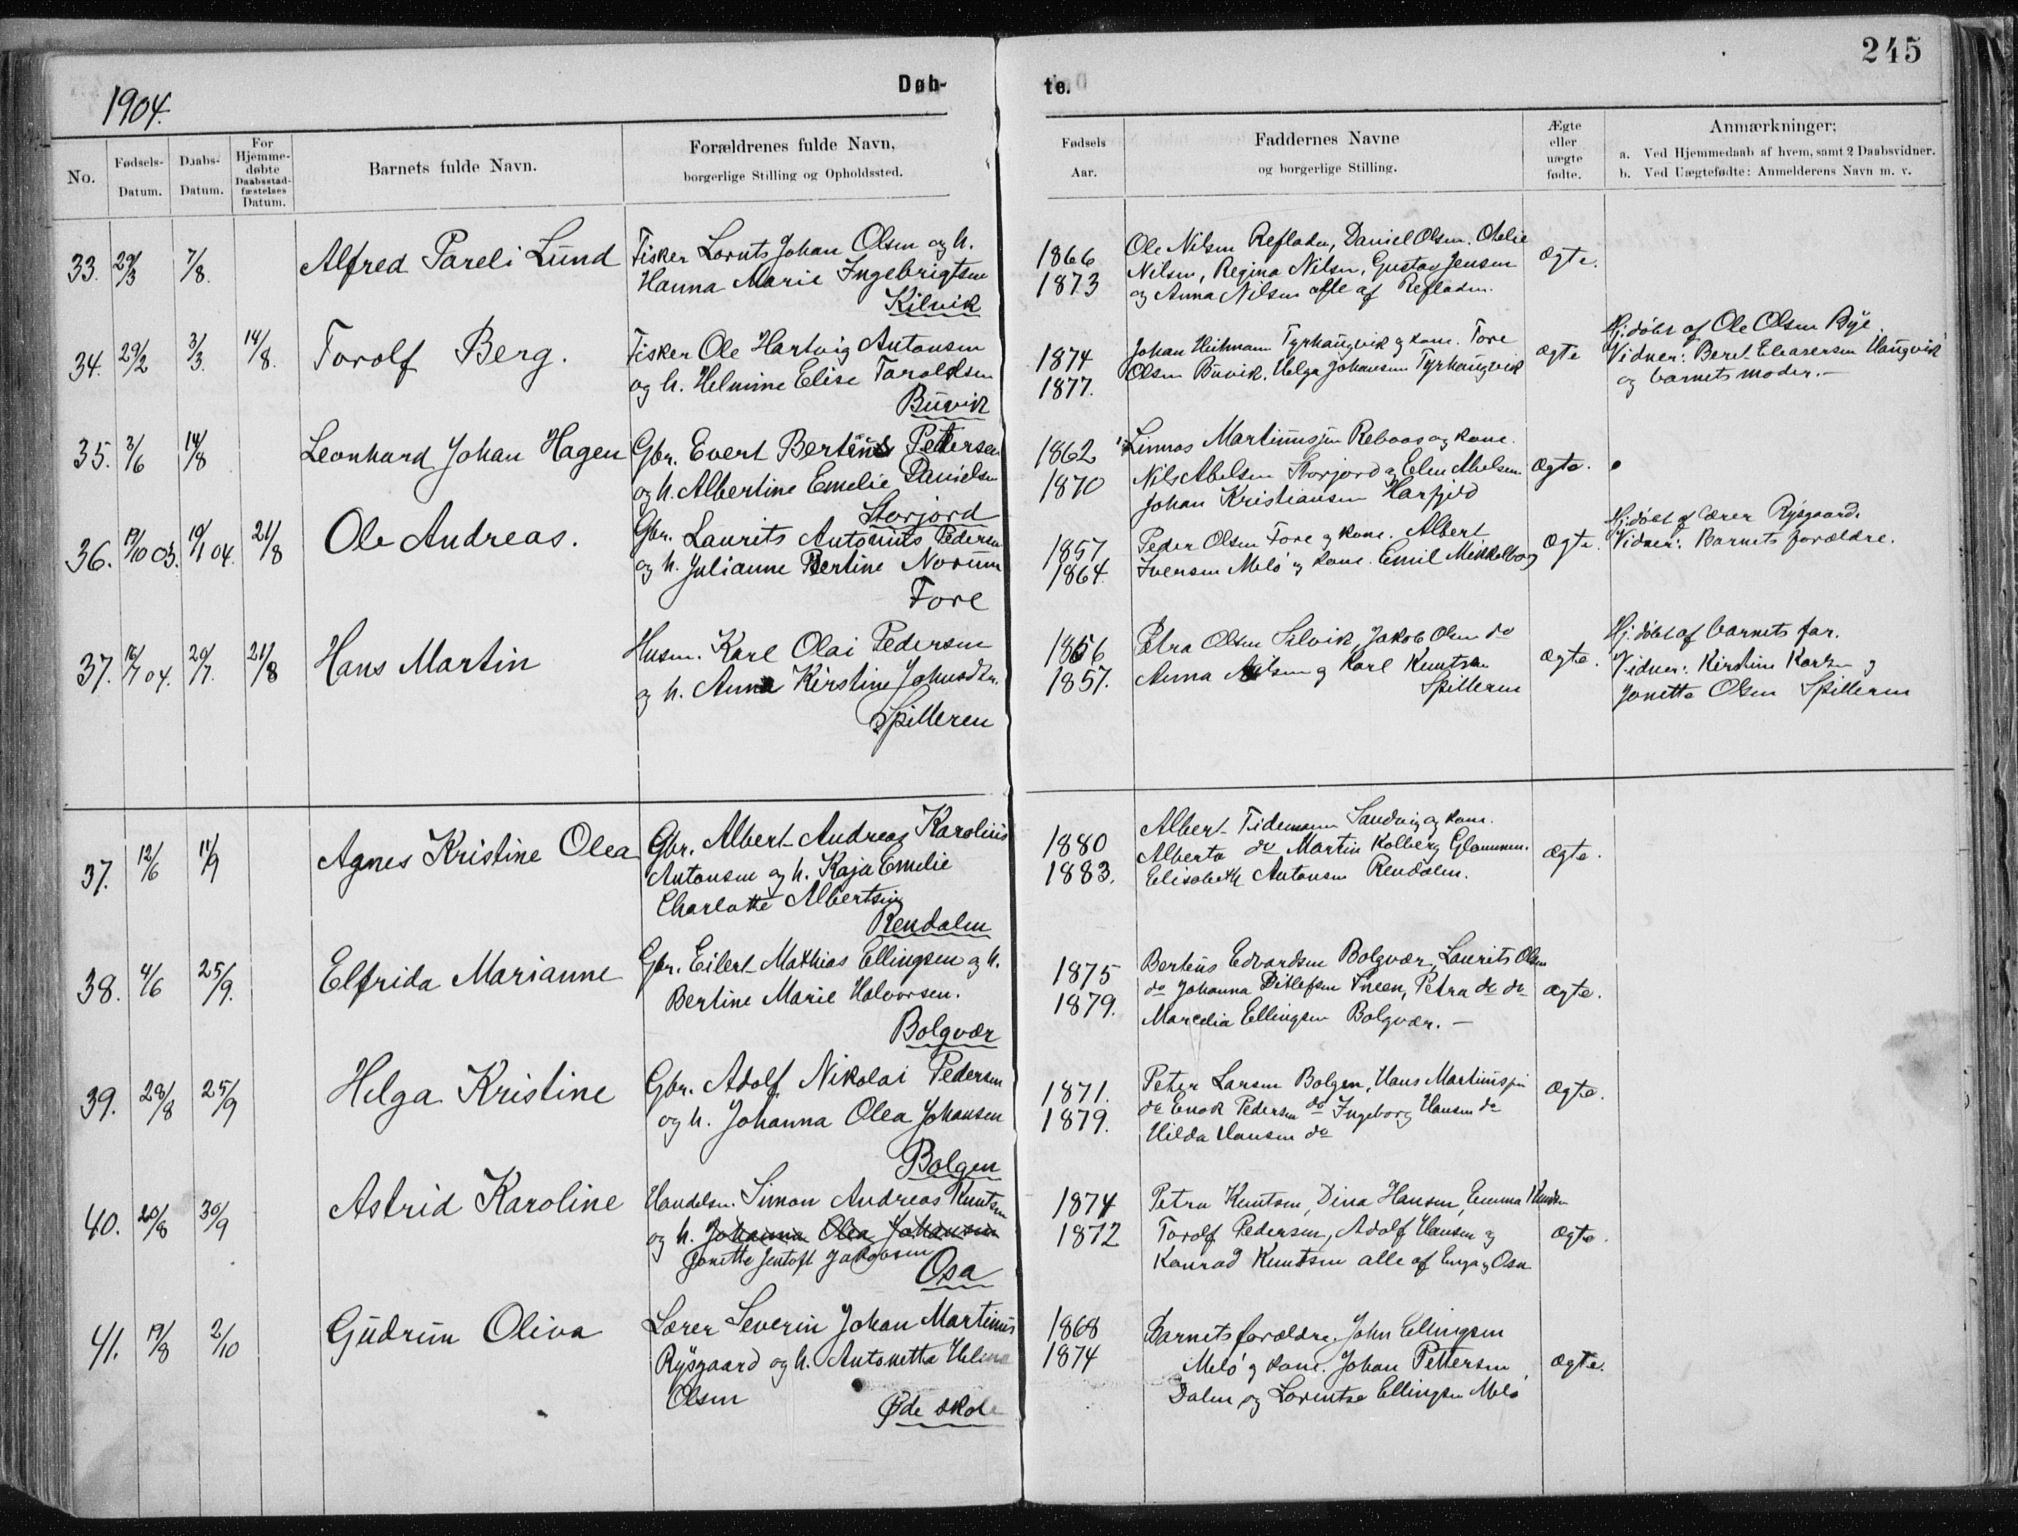 245
Døb- te.
1904.
No.
Fødsels-
Datum.
Daabs-
Datum.
For
Hjemme-
døbte
Daabsstad-
fæstelses
Datum.
Barnets fulde Navn.
Forældrenes fulde Navn,
borgerlige Stilling og Opholdssted.
Fødsels
Aar.
Faddernes Navne
og borgerlige Stilling.
Ægte
eller
uægte
fødte.
Anmærkninger;
a. Ved Hjemmedaab af hvem, samt 2 Daabsvidner.
b. Ved Uægtefødte: Anmelderens Navn m. v.
33. 29/3 7/8.
Alfred Pareli Lund
Fisker Lornts Johan Olsen og h.
Hanna Marie Ingebrigtsen
Kilvik
1866
1873
Ole Nilsen Refladen, Daniel Olsen,
Nilsen, Regina Nilsen, Gustav Jensen
og Anna Nilsen alle af Refladen.
ægte.
34. 29/2 3/3. 14/8.
Torolf Berg.
Fisker Ole Hartvig Antonsen
og h. Helmine Elise Taraldsen
Buvik
1874
1877.
Johan Heitmann Tyrhaugvik og kone. Tore
Olsen Buvik. Helga Johansen Tyrhaugvik
ægte
Hj.døbt af Ole Olsen Bye.
Vidner: Beret Eleasersen Haugvik
og barnets moder.—
35. 3/6 14/8
Leonhard Johan Hagen
Gbr. Evert Bertëus Petersen
og h. Albertine Emelie Danielsen
Storjord
1862
1870
Linnas Martinussen Reboas og kone.
Nils Abelsen Storjord og Elen Abelsen.
Johan Kristiansen Harfjeld
ægte.
36. 19/10 03. 10/1 04. 21/8
Ole Andreas.
Gbr. Laurits Antonius Pedersen
og h. Julianne Bertine Norum
Fore
1857
1864.
Peder Olsen Fore og kone. Albert
Iversen Melø og kone. Emil Mikkelborg
ægte.
Hj.døbt af lærer Rysgaard.
Vidner: Barnets forældre.
37. 16/7 04. 20/7. 21/8
Hans Martin
Husm. Karl Olai Pedersen
og h. Anna Kirstine Johnsdtr.
Spilderen
1856
1857.
Petra Olsen Selvik, Jakob Olsen do
Anna Nilsen og Karl Knutsen
Spilderen
ægte.
Hj.døbt af barnets far.
Vidner: Kirstine Karlsen og
Jonetta Olsen Spilderen
37. 12/6 11/9
Agnes Kristine Olea
Gbr. Albert Andreas Karolius
Antonsen og h. Kaja Emelie
Charlotte Albertsen
Rendalen
1880
1883.
Albert Tidemann Sandvig og kone.
Alberta do Martin Kolberg Glommen.
Elisabeth Antonsen Rendalen.
ægte.
38. 4/6 25/9.
Elfrida Marianne
Gbr. Eilert Mathias Ellingsen og h.
Bertine Marie Halvorsen.
Bolgvær
1875
1879.
Berteus Edvardsen Bolgvær, Laurits Olsen
do Johanna Ditlefsen Sneen, Petra do do
Marcelia Ellingsen Bolgvær.—
ægte.
39. 28/8 25/9
Helga Kristine
Gbr. Adolf Nikolai Pedersen
og h. Johanna Olea Johansen
Bolgen
1871.
1879.
Peter Larsen Bolgen, Hans Martinussen
do Enok Pedersen do Ingeborg Hansen do
Hilda Hansen do
ægte.
40. 20/8 30/9
Astrid Karoline
Handelsm. Simon Andreas Knutsen
og h. Johanna Olea Johansen
Jonetta Jentoft Jakobsen
Osa
1874
1872
Petra Knutsen, Dina Hansen, Emma Knudsen
Torolf Pedersen, Adolf Hansen og
Konrad Knutsen alle af Enga og Osa
ægte.
41. 19/8 2/10
Gudrun Oliva
Lærer Severin Johan Martinus
Rysgaard og h. Antonetta Helena
Olsen
Øde skole
1868
1874
Barnets forældre, John Ellingsen
Melø og kone. Johan Pettersen
Dalen og Lorentse Ellingsen Melø
ægte.